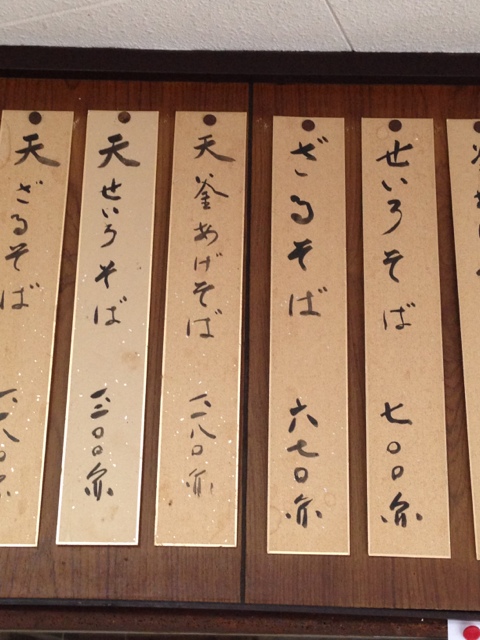 せいろそば 七〇〇円
ざるそば 六七〇円
天釜あげそば 一二八〇円
天せいろそば 一三〇〇円
天ざるそば 一二八〇円